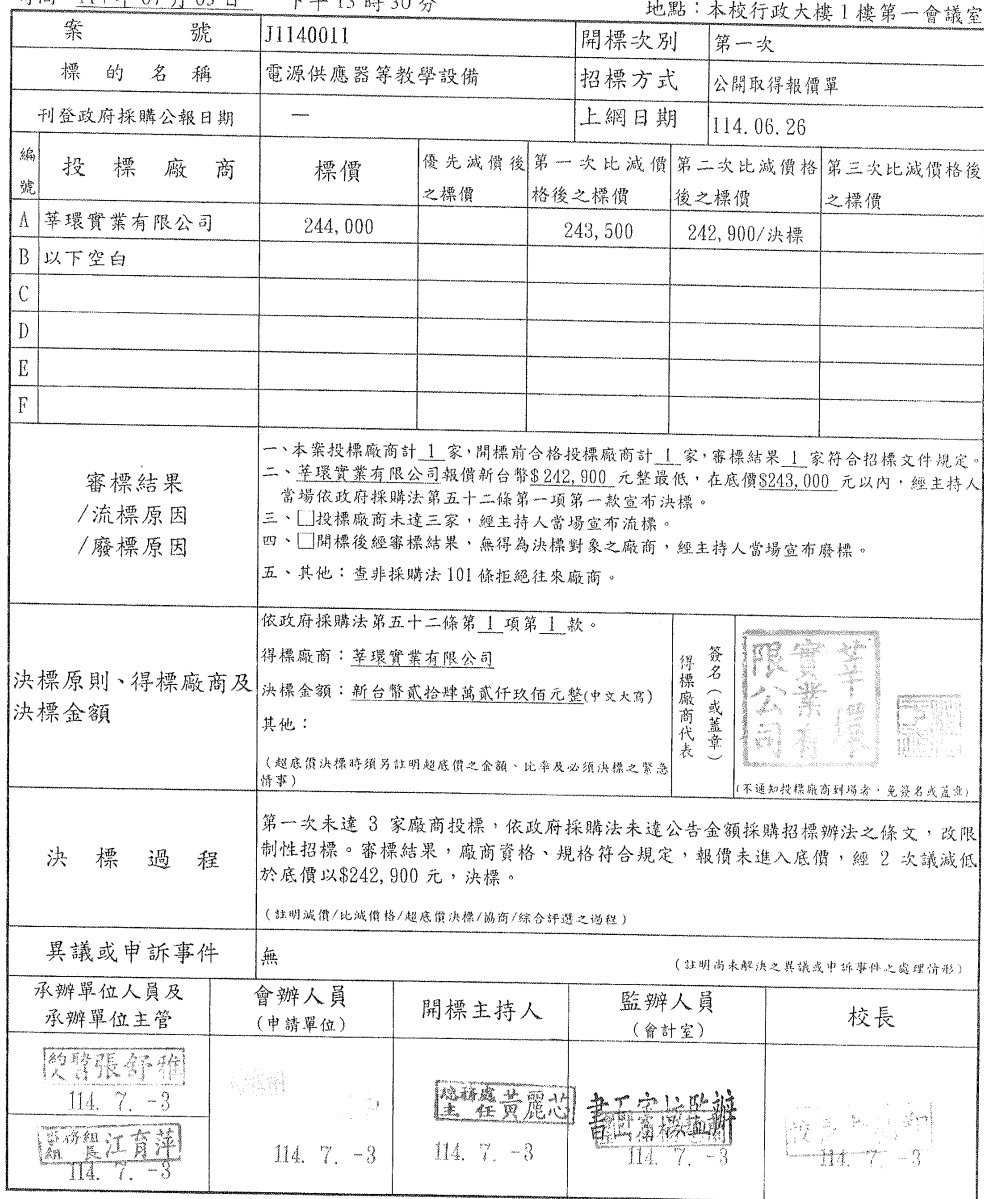 地點：本校行政大樓1樓第一會議室
案號 J1140011 開標次別 第一次
標的名稱 電源供應器等教學設備 招標方式 公開取得報價單
刊登政府採購公報日期 — 上網日期 114.06.26
編號 投標廠商 標價 優先減價後之標價 第一次比減價格後之標價 第二次比減價格後之標價 第三次比減價格後之標價
A 莘環實業有限公司 244,000 243,500 242,900/決標
B 以下空白
C
D
E
F
審標結果
/流標原因
/廢標原因
一、本案投標廠商計 1 家，開標前合格投標廠商計 1 家，審標結果 1 家符合招標文件規定。
二、莘環實業有限公司報價新台幣$242,900 元整最低，在底價$243,000 元以內，經主持人
當場依政府採購法第五十二條第一項第一款宣布決標。
三、□投標廠商未達三家，經主持人當場宣布流標。
四、□開標後經審標結果，無得為決標對象之廠商，經主持人當場宣布廢標。
五、其他：查非採購法 101 條拒絕往來廠商。
決標原則、得標廠商及
決標金額
依政府採購法第五十二條第 1 項第 1 款。
得標廠商：莘環實業有限公司
決標金額：新台幣貳拾肆萬貳仟玖佰元整(中文大寫)
其他：
（超底價決標時須另註明超底價之金額、比率及必須決標之緊急
情事）
得標廠商代表
簽名（或蓋章）
莘環
實業有
限公司
(不通知投標廠商到場者，免簽名或蓋章)
決標過程
第一次未達 3 家廠商投標，依政府採購法未達公告金額採購招標辦法之條文，改限
制性招標。審標結果，廠商資格、規格符合規定，報價未進入底價，經 2 次議減低
於底價以$242,900 元，決標。
（註明減價/比減價格/超底價決標/協商/綜合評選之過程）
異議或申訴事件 無 （註明尚未解決之異議或申訴事件之處理情形）
承辦單位人員及
承辦單位主管
會辦人員
(申請單位)
開標主持人
監辦人員
(會計室)
校長
張舒雅
114. 7. -3
組長 江育萍
114. 7. -3
114. 7. -3
總務處主任 黃麗芯
114. 7. -3
114. 7. -3
114. 7. -3